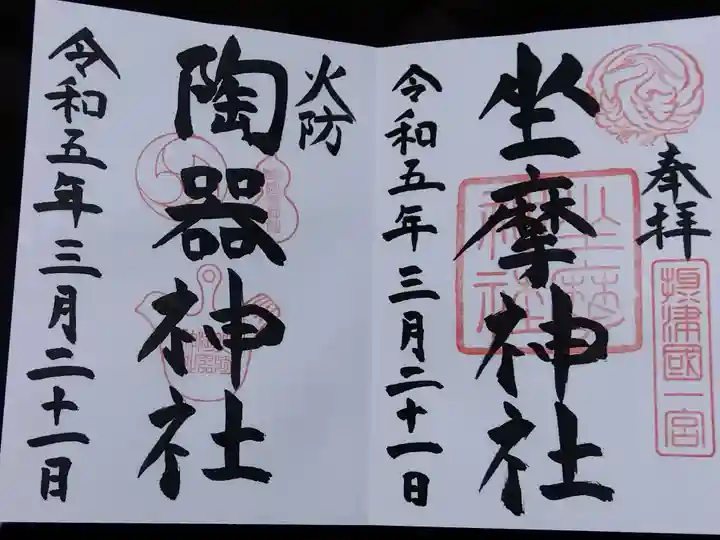 奉拝
摂津國一宮
坐摩神社
令和五年三月二十一日
火防
陶器神社
令和五年三月二十一日